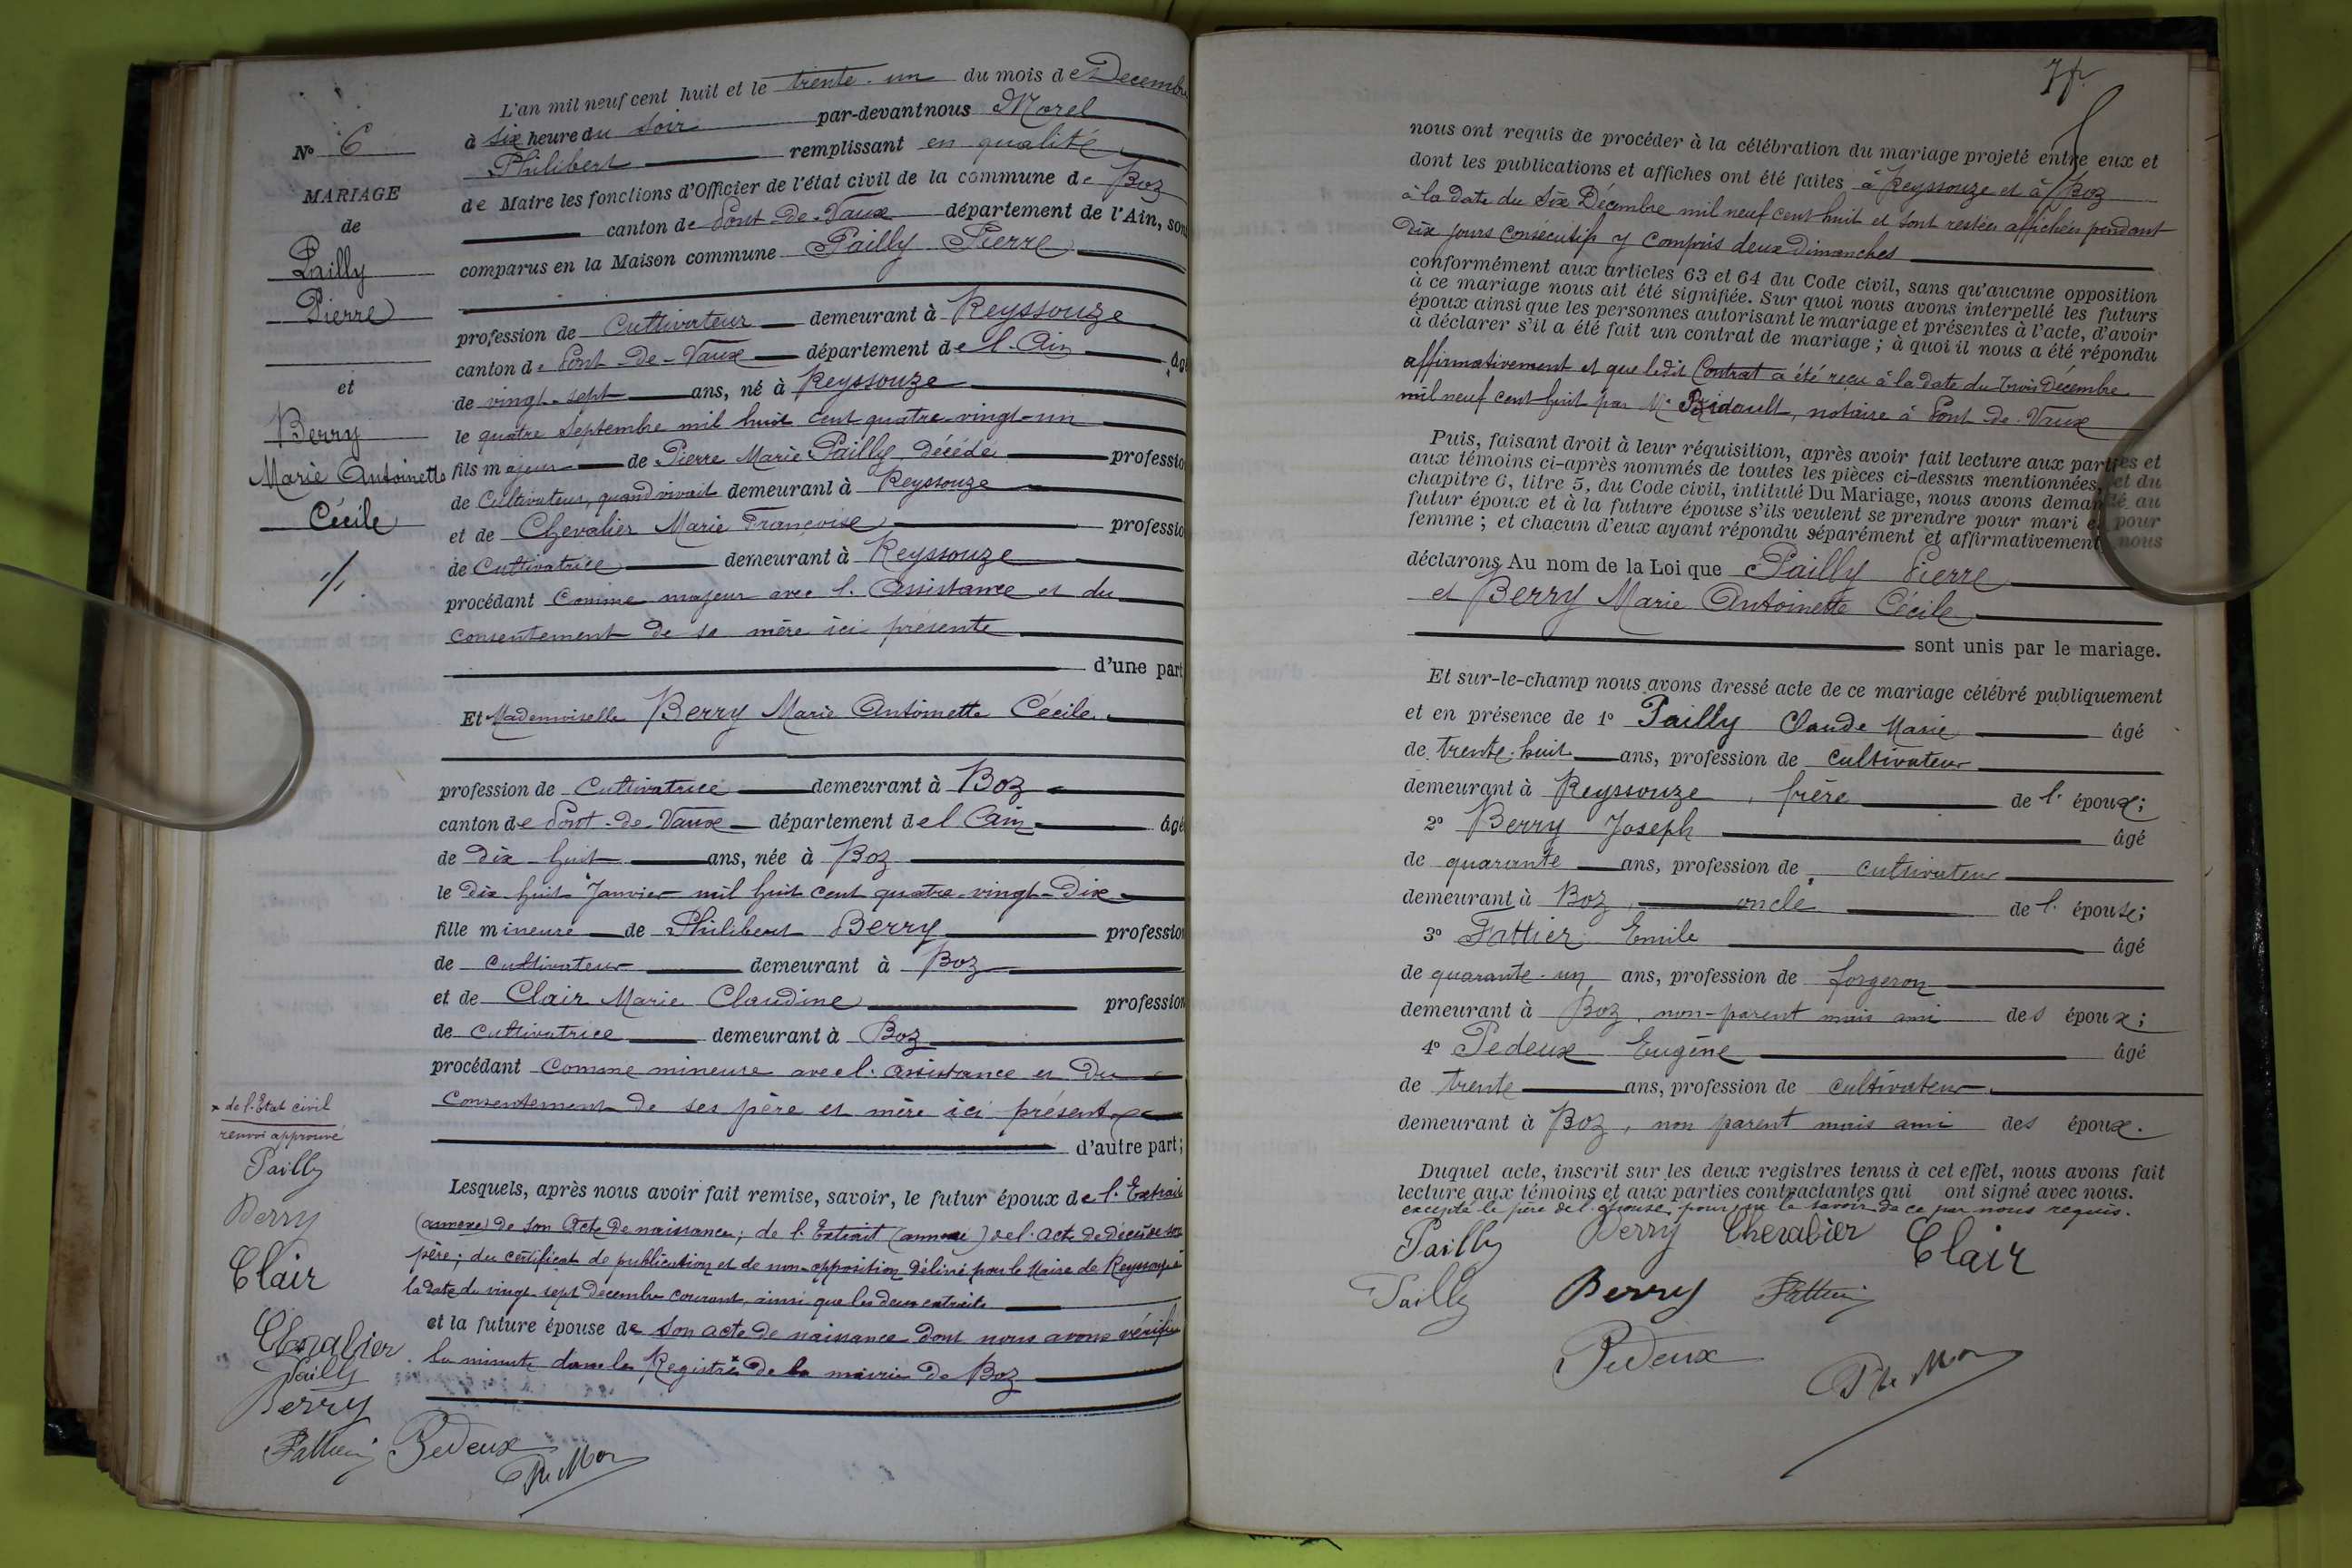 L'an mil neuf cent huit et le trente-un du mois de Decembre
à six heure du soir par-devant nous Morel
Philibert remplissant en qualité
de Maire les fonctions d'Officier de l'état civil de la commune de Boz
canton de Pont-de-Vaux département de l'Ain, son
comparus en la Maison commune Pailly Pierre
profession de Cultivateur demeurant à Reyssouze
canton de Pont-de-Vaux département de l'Ain âgé
de vingt-sept ans, né à Reyssouze
le quatre Septembre mil huit cent quatre-vingt-un
fils majeur de Pierre Marie Pailly, décédé professio
de Cultivateur, quand vivait demeurant à Reyssouze
et de Chevalier Marie Françoise professio
de Cultivatrice demeurant à Reyssouze
procédant Comme majeur avec l'assistance et du
consentement de sa mère ici présente
d'une part
Et Mademoiselle Berry Marie Antoinette Cécile
profession de Cultivatrice demeurant à Boz
canton de Pont-de-Vaux département de l'Ain âgé
de dix-huit ans, née à Boz
le dix huit Janvier mil huit cent quatre-vingt-dix
fille mineure de Philibert Berry profession
de cultivateur demeurant à Boz
et de Clair Marie Claudine profession
de cultivatrice demeurant à Boz
procédant Comme mineure avec l'assistance et du
consentement de ses père et mère ici présent
d'autre part;
Lesquels, après nous avoir fait remise, savoir, le futur époux de l'Extrait
(annexe) de son Acte de naissance; de l'Extrait (annexé) de l'acte de décès de son
père; du certificat de publication et de non-opposition délivré par le Maire de Reyssouze à
la date du vingt-sept Decembre courant, ainsi que les deux extraits
et la future épouse de son acte de naissance dont nous avons vérifié
la minute dans les Registres x de la mairie de Boz
N° 6
MARIAGE
de
Pailly
Pierre
et
Berry
Marie Antoinette
Cécile
x de l'Etat civil
renvoi approuvé
Pailly
Berry
Clair
Chevalier
Pailly
Berry
Fattier Pedeux
Ph Mor
7 f.
nous ont requis de procéder à la célébration du mariage projeté entre eux et
dont les publications et affiches ont été faites à Reyssouze et à Boz
à la date du Six Décembre mil neuf cent huit et sont restées affichées pendant
dix jours consécutifs y compris deux Dimanches
conformément aux articles 63 et 64 du Code civil, sans qu'aucune opposition
à ce mariage nous ait été signifiée. Sur quoi nous avons interpellé les futurs
époux ainsi que les personnes autorisant le mariage et présentes à l'acte, d'avoir
à déclarer s'il a été fait un contrat de mariage; à quoi il nous a été répondu
affirmativement et que ledit Contrat a été reçu à la date du trois Décembre
mil neuf cent huit par Me Bridault, notaire à Pont-de-Vaux
Puis, faisant droit à leur réquisition, après avoir fait lecture aux parties et
aux témoins ci-après nommés de toutes les pièces ci-dessus mentionnées, et du
chapitre 6, titre 5, du Code civil, intitulé Du Mariage, nous avons demandé au
futur époux et à la future épouse s'ils veulent se prendre pour mari et pour
femme; et chacun d'eux ayant répondu séparément et affirmativement nous
déclarons Au nom de la Loi que Pailly Pierre
et Berry Marie Antoinette Cécile
sont unis par le mariage.
Et sur-le-champ nous avons dressé acte de ce mariage célébré publiquement
et en présence de 1° Pailly Claude Marie âgé
de trente-huit ans, profession de cultivateur
demeurant à Reyssouze, frère de l'époux;
2° Berry Joseph âgé
de quarante ans, profession de cultivateur
demeurant à Boz, oncle de l'épouse;
3° Fattier Emile âgé
de quarante-un ans, profession de forgeron
demeurant à Boz, non-parent mais ami des époux;
4° Pedeux Eugène âgé
de trente ans, profession de cultivateur
demeurant à Boz, non parent mais ami des époux.
Duquel acte, inscrit sur les deux registres tenus à cet effet, nous avons fait
lecture aux témoins et aux parties contractantes qui ont signé avec nous.
excepté le père de l'épouse, pour ne le savoir de ce par nous requis.
Pailly Berry Chevalier Clair
Pailly Berry Fattier
Pedeux
Ph Mor